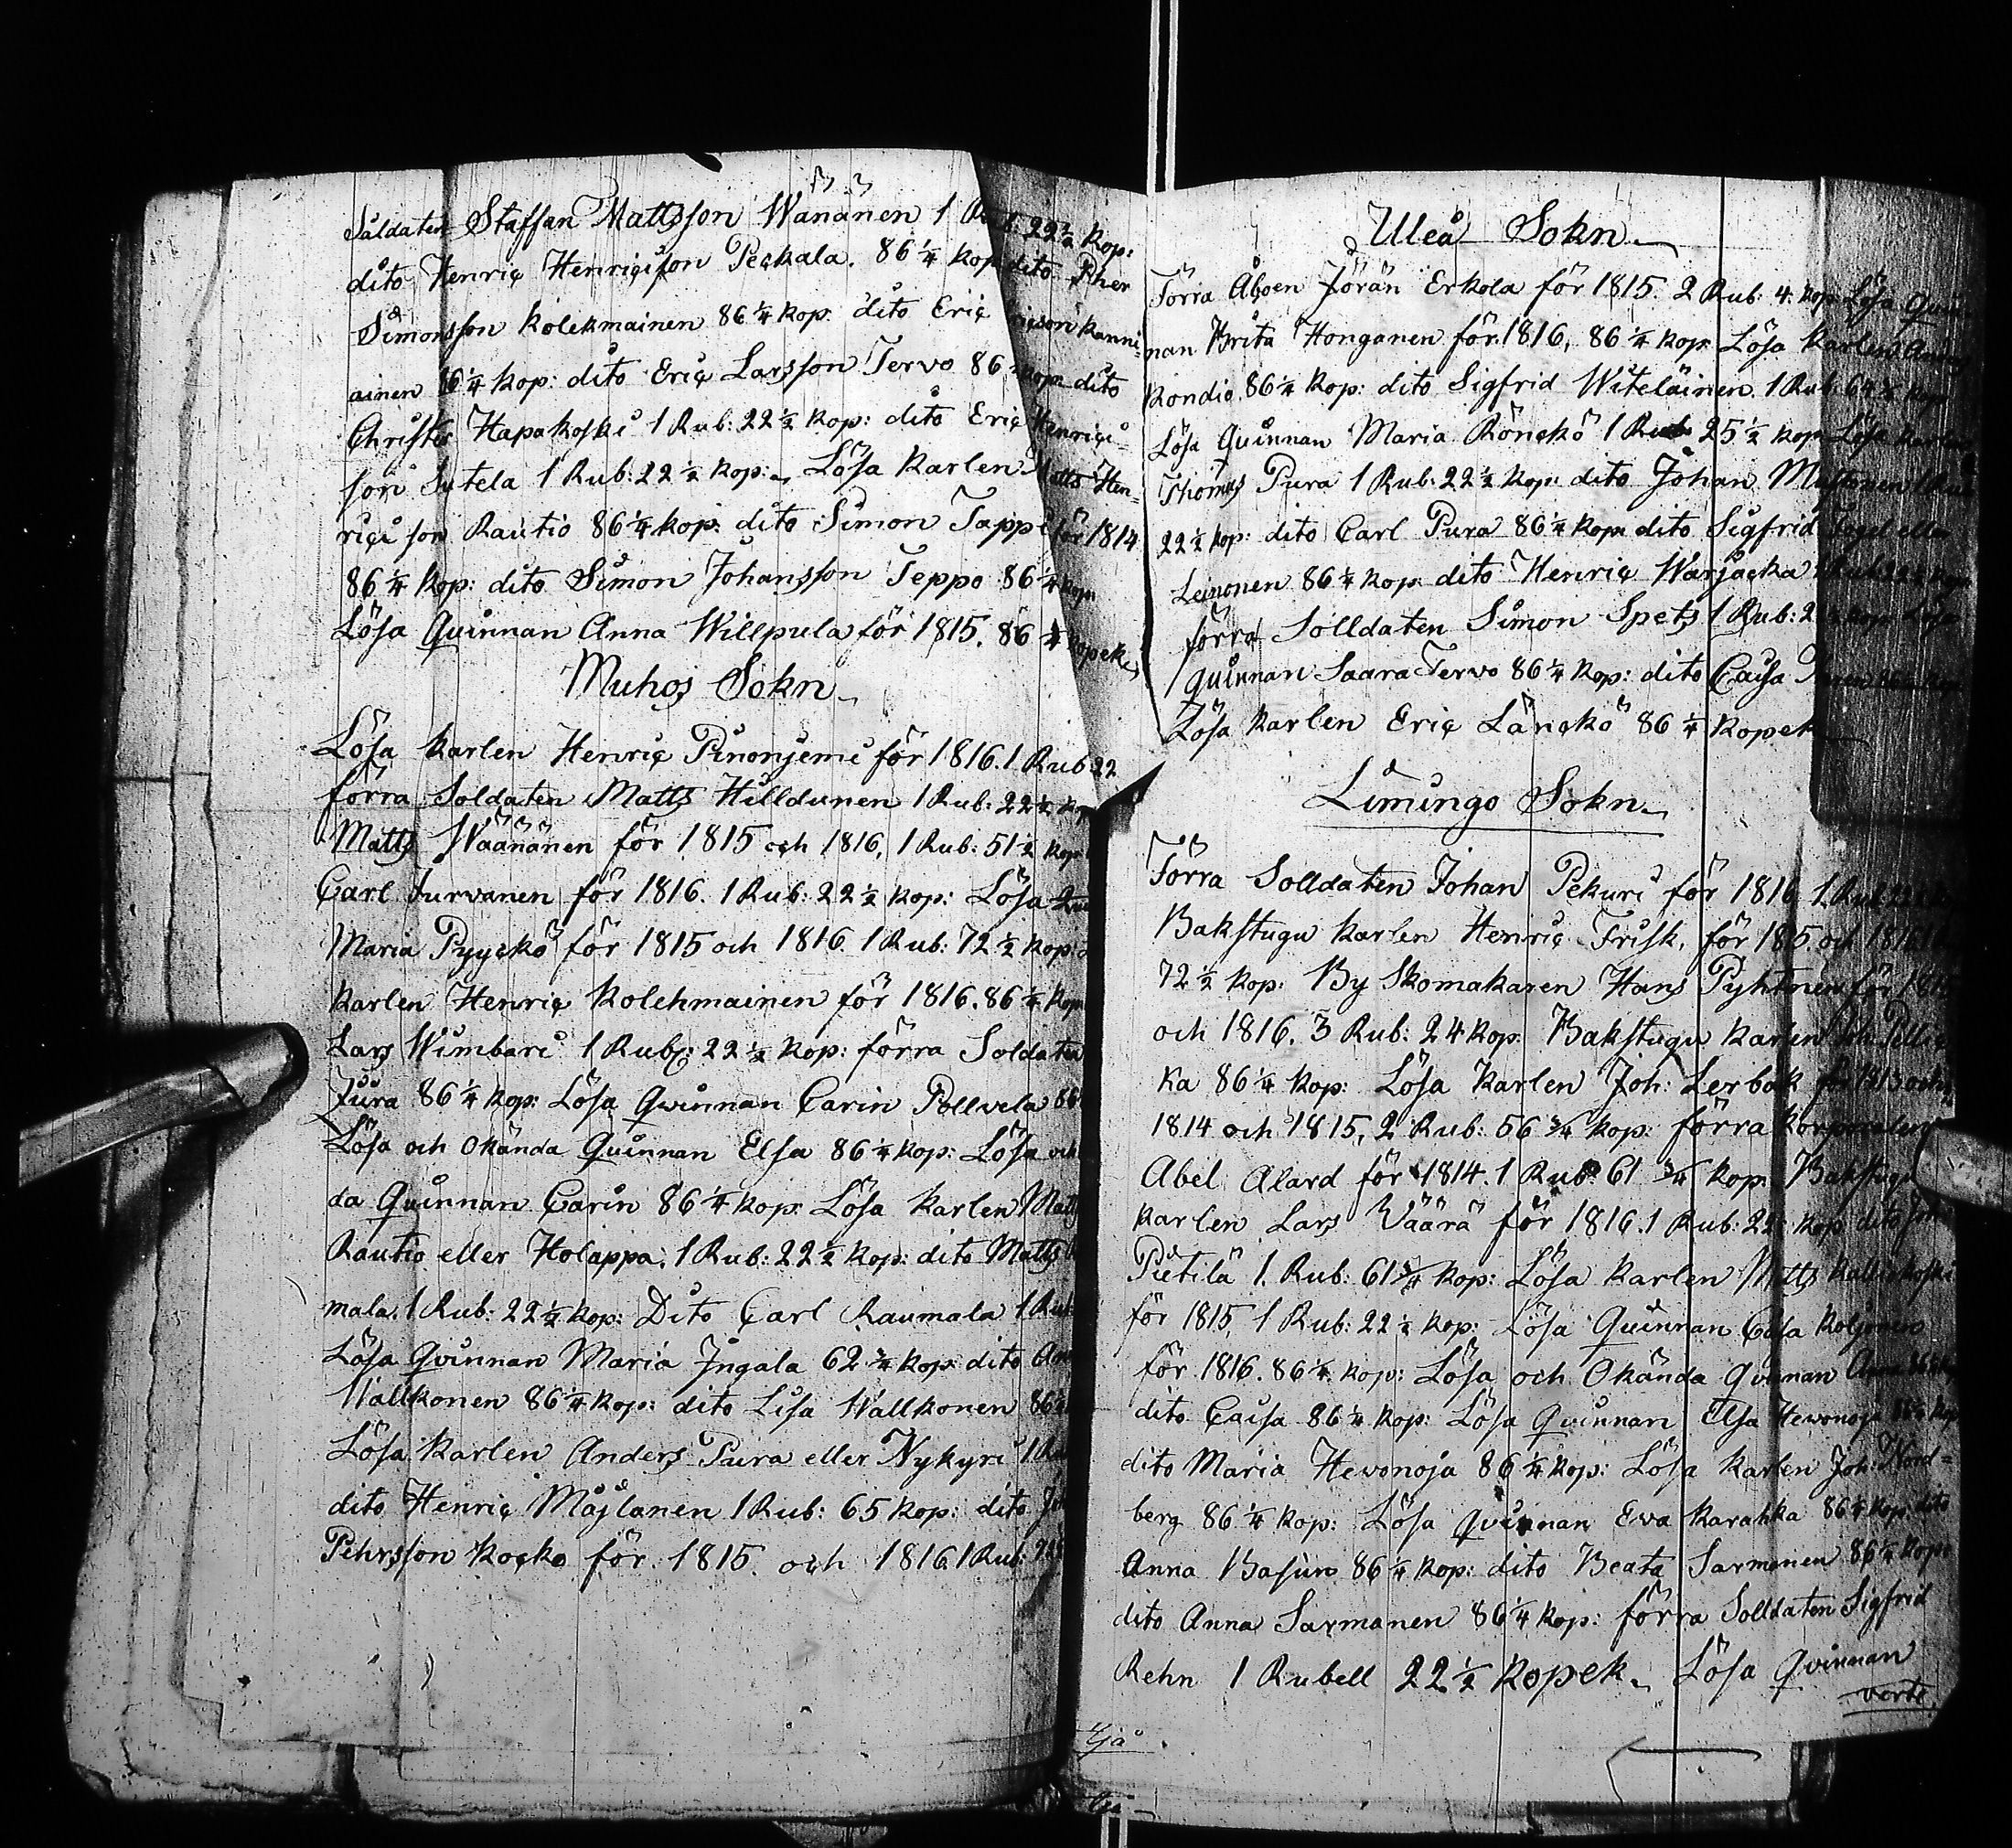 Soldaten Staffan Mattsson Wänänen 1 Rub: 22½ Kop:
dito Henric Henricsson Peckala. 86¼ Kop dito Pher
Simonsson Kolekmainen 86¼ Kop: dito Eric Ericson Kanni-
ainen 86¼ Kop: dito Eric Larsson Tervo 86¼ Kop: dito
Christer Hapakoski 1 Rub: 22½ Kop: dito Eric Henrici-
son Sutela 1 Rub: 22½ Kop: Lösa Karlen Matts Hen-
rici son Rautio 86¼ Kop: dito Simon Tappi för 1814
86¼ Kop: dito Simon Johansson Teppo 86¼ Kop:
Lösa Quinnan Anna Willpula för 1815. 86¼ Kopek
Muhos Sokn
Lösa Karlen Henric Pinonjemi för 1816. 1 Rub: 22
förra Soldaten Matts Hilldunen 1 Rub: 22½ Kop
Matts Wäänänen för 1815 och 1816, 1 Rub: 51½ Kop:
Carl Turvanen för 1816. 1 Rub: 22½ Kop: Lösa
Maria Pyyckö för 1815 och 1816. 1 Rub: 72½ Kop:
Karlen Henric Kolehmainen för 1816. 86¼ Kop
Lars Wimbari 1 Rub: 22½ Kop: förra Soldaten
Jura 86¼ Kop: Lösa Qwinnan Carin Pollvela 86
Lösa och Okända Quinnan Elsa 86¼ Kop: Lösa och
da Quinnan Carin 86¼ Kop: Lösa Karlen Matts
Rautio eller Holappa. 1 Rub: 22½ Kop: dito Matts
mala. 1 Rub: 22½ Kop: Dito Carl Raumala 1 Rub
Lösa Qvinnan Maria Jngala 62¾ Kop: dito
Wallkonen 86¼ Kop: dito Lisa Wallkonen 86¼
Lösa Karlen Anders Pura eller Nykyri 1 Rub
dito Henric Måjlanen 1 Rub: 65 Kop: dito Joh
Pehrsson Kocko för 1815. och 1816. 1 Rub:
Uleå Sokn
Förra Åboen Jöran Erkola för 1815. 2 Rub: 4. Kop: Lösa Quin-
nan Brita Honganen för 1816, 86¼ Kop: Lösa Karlen Anders
Kondio. 86¼ Kop: dito Sigfrid Witeläinen. 1 Rub: 64¾ Kop
Lösa Quinnan Maria Rönckö 1 Rub 25½ Kop Lösa Karlen
Thomas Pura 1 Rub: 22½ Kop: dito Johan
22½ Kop: dito Carl Pura 86¼ Kop: dito Sigfrid
Leinonen 86¼ Kop: dito Henric Warjacka
förra Solldaten Simon Spets 1 Rub:
Quinnan Saara Tervo 86¼ Kop: dito Caisa
Lösa Karlen Eric Länckö 86¼ Kopek
Limingo Sokn
Förra Solldaten Johan Pekuri för 1816 1. Rub
Bakstugu Karlen Henric Frisk, för 1815 och 1816
72½ Kop: By Skomakaren Hans Pyhtinen för 1815
och 1816. 3 Rub: 24 Kop: Bakstugu Karlen Joh: Pellic
ka 86¼ Kop: Lösa Karlen Joh: Lerbak för 1813 och
1814 och 1815, 2 Rub: 56¾ Kop: förra Korporalen
Abel Alard för 1814. 1 Rub: 61¾ Kop: Bakstugu
Karlen Lars Väärä för 1816. 1 Rub: 22½ Kop dito
Pietilä 1. Rub: 61¾ Kop: Lösa Karlen Matts
för 1815, 1 Rub: 22½ Kop: Lösa Quinnan Caisa Koljonen
för 1816. 86¼ Kop: Lösa och Okända Qvinnan Anna 86¼
dito Caisa 86¼ Kop: Lösa Quinnan Elsa Hewonoja 86¼ Kop
dito Maria Hewonoja 86¼ Kop: Lösa Karlen Joh: Nord=
berg 86¼ Kop: Lösa Qvinnan Ewa Karahka 86¼ Kop: dito
Anna Basun 86¼ Kop: dito Beata Sarmanen 86¼ Kop:
dito Anna Sarmanen 86¼ Kop: förra Solldaten Sigfrid
Rehn 1 Rubell 22½ Kopek. Lösa Qvinnan
verte